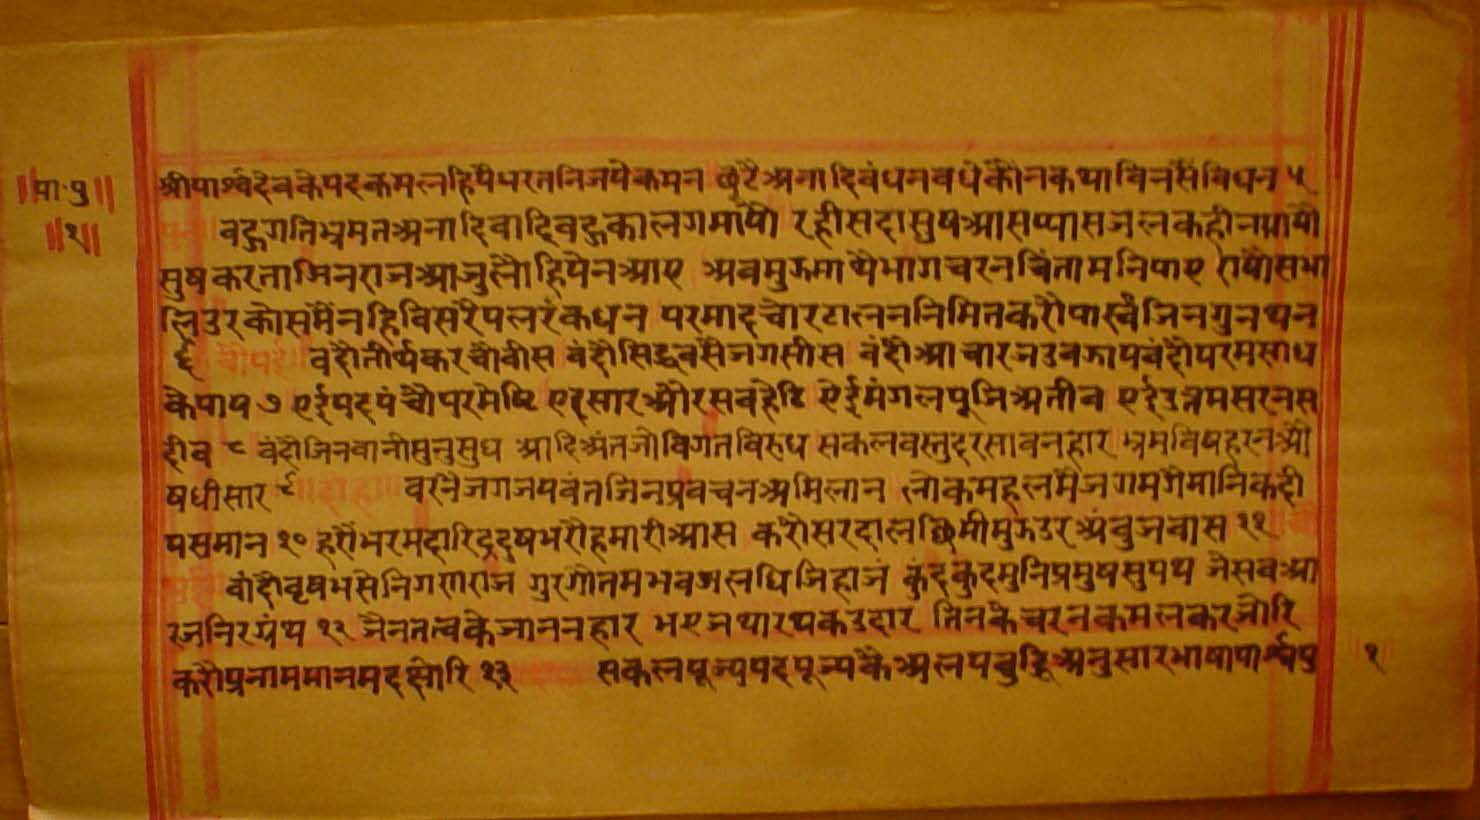 ॥पा·पु॥
॥१॥
श्रीपार्श्वदेवकेपदकमलहियैधरतनिजयेकमन छूटैअनादिबंधनबधेकौनकथाविनसैंविघन ५
बहुगतिभ्रमतअनादिवादिबहुकालगमायौ रहीसदासुषआसप्यासजलकहीनपायौ
सुषकरताजिनराजआजुलौहियेनआए अबमुझमाथेभागचरनचिंतामनिपाए राषौसभा
लिउरकोसमैंनहिविसरैपलरंकधन परमादचोरटालननिमितकरौपार्स्वजिनगुनथन
६ चौपई वंदौतीर्थकरचौवीस वंदौसिद्धवसैजगसीस वंदौआचारजउवझायवंदौपरमसाध
केपाय ७ एईपदपंचौपरमेष्टि एइसारऔरसवहेटि एईमंगलपूजिअतीव एईउत्तमसरनस
दीव ८ वंदौजिनवानीसुनुसुध आदिअंतजोविगतविरुध सकलवस्तुदरसावनहार भ्रमविषहरनऔ
षधीसार ९ दोहा वरनैजगजयवंतजिनप्रवचनअमिलान लोकमहलमैंजगमगैमानिकदी
पसमान १० हरौंभरमदारिद्रदुषभरौहमारीआस करौसरदालछिमीमुझउरअंबुजवास ११
वांदौवृषभसेनिगणराज गुरगौतमभवजलधिजिहाज कुंदकुंदमुनिप्रमुषसुपथ जेसबआ
रजनिरग्रंथ १२ जैनतत्वकेजाननहार भएजथारथकउदार तिनकेचरनकमलकरजोरि
करौप्रनाममानमदछोरि १३ सकलपूज्यपदपूज्यकैअलपबुद्धिअनुसारभाषापार्श्वपु
१